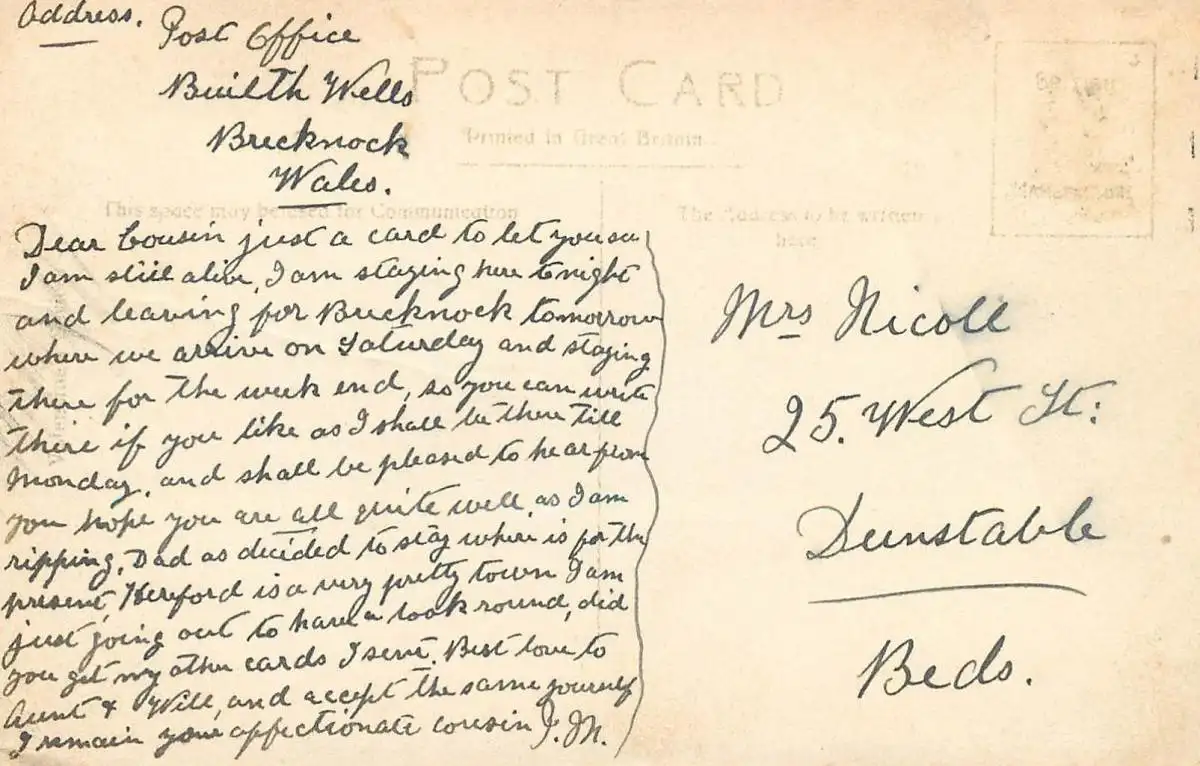 Address.
Post Office
Builth Wells
Brecknock
Wales.
POST CARD
Printed in Great Britain
This space may be used for Communication
The Address to be written
here
Dear Cousin just a card to let you see
I am still alive, I am staying here tonight
and leaving for Brecknock tomorrow
where we arrive on Saturday and staying
there for the week end, so you can write
there if you like as I shall be there till
Monday, and shall be pleased to hear from
you hope you are all quite well, as I am
ripping, Dad as decided to stay where is for the
present, Hereford is a very pretty town I am
just going out to have a look round, did
you get my other cards I sent. Best love to
Aunt & Will, and accept the same yourself
I remain your affectionate cousin J. M.
Mrs Nicoll
25. West St:
Dunstable
Beds.